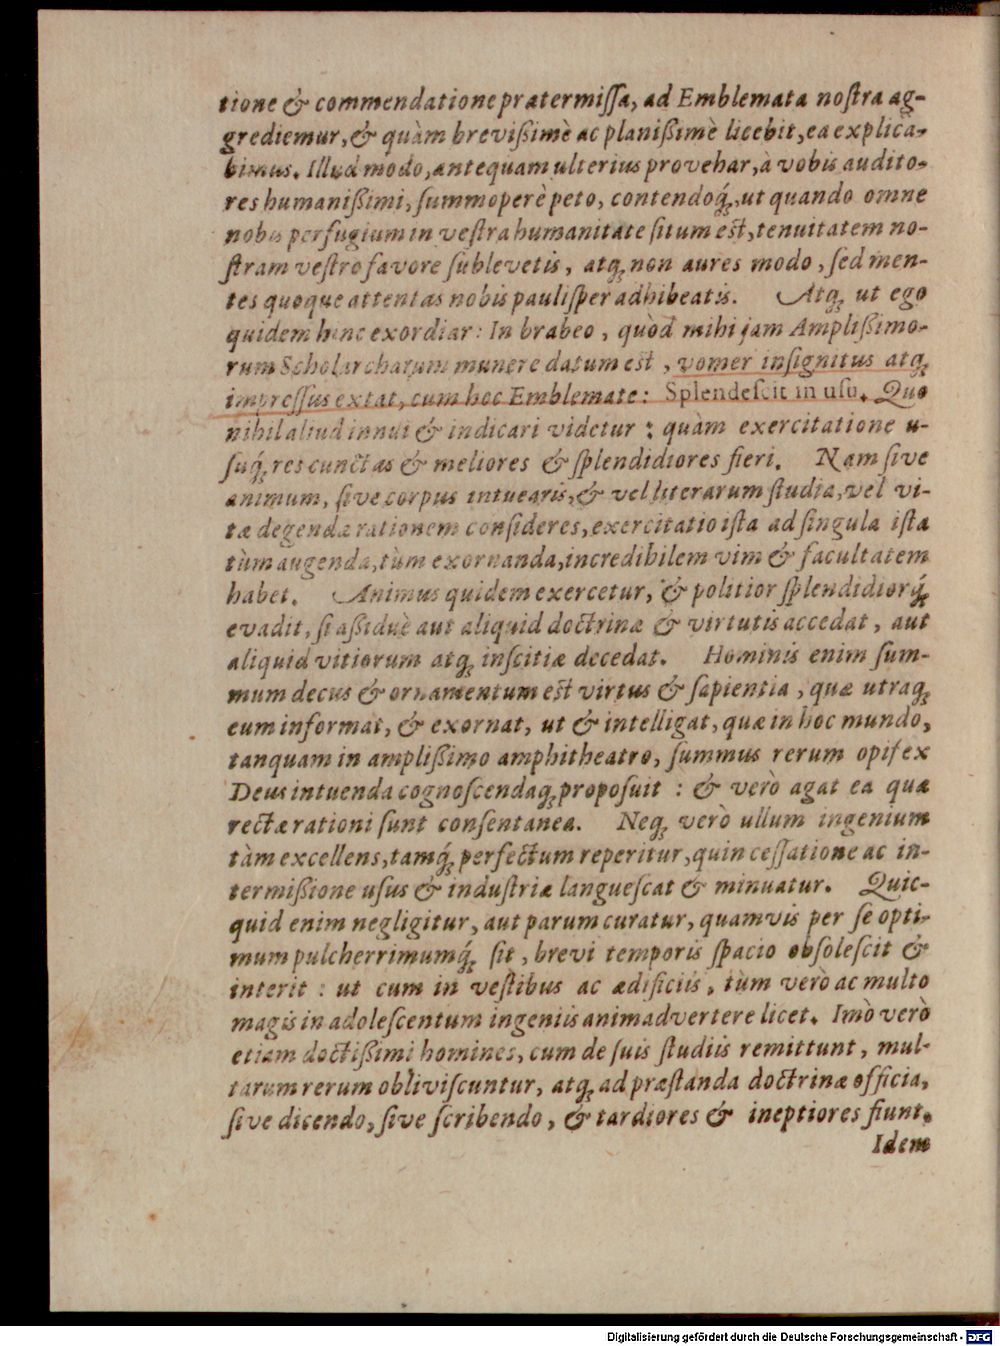 tione & commendatione prætermiſſa, ad Emblemata noſtra ag-
grediemur, & quàm breviſſimè ac planiſſimè licebit, ea explica-
bimus. Illud modo, antequam ulterius provehar, à vobis audito-
res humaniſſimi, ſummoperè peto, contendoq́;, ut quando omne
nobis perfugium in veſtra humanitate ſitum eſt, tenuitatem no-
ſtram veſtro favore ſublevetis, atq; non aures modo, ſed men-
tes quoque attentas nobis pauliſper adhibeatis. Atq; ut ego
quidem hinc exordiar: In brabeo, quòd mihi jam Ampliſſimo-
rum Scholarcharum munere datum eſt, vomer inſignitus atq;
impreſſus extat, cum hoc Emblemate: Splendeſcit in uſu. Quo
nihil aliud innui & indicari videtur: quàm exercitatione u-
ſuq́; res cunctas & meliores & ſplendidiores fieri. Nam ſive
animum, ſive corpus intuearis, & vel literarum ſtudia, vel vi-
tæ degendæ rationem conſideres, exercitatio iſta ad ſingula iſta
tùm augenda, tùm exornanda, incredibilem vim & facultatem
habet. Animus quidem exercetur, & politior ſplendidiorq́;
evadit, ſi aſſiduè aut aliquid doctrinæ & virtutis accedat, aut
aliquid vitiorum atq; inſcitiæ decedat. Hominis enim ſum-
mum decus & ornamentum eſt virtus & ſapientia, quæ utraq;
eum informat, & exornat, ut & intelligat, quæ in hoc mundo,
tanquam in ampliſſimo amphitheatro, ſummus rerum opifex
Deus intuenda cognoſcendaq; propoſuit: & verò agat ea quæ
rectæ rationi ſunt conſentanea. Neq; verò ullum ingenium
tàm excellens, tamq́; perfectum reperitur, quin ceſſatione ac in-
termiſſione uſus & induſtriæ langueſcat & minuatur. Quic-
quid enim negligitur, aut parum curatur, quamvis per ſe opti-
mum pulcherrimumq́; ſit, brevi temporis ſpacio obſoleſcit &
interit: ut cum in veſtibus ac ædificiis, tùm verò ac multo
magis in adoleſcentum ingeniis animadvertere licet. Imò verò
etiam doctiſſimi homines, cum de ſuis ſtudiis remittunt, mul-
tarum rerum obliviſcuntur, atq; ad præſtanda doctrinæ officia,
ſive dicendo, ſive ſcribendo, & tardiores & ineptiores fiunt.
Idem
Digitalisierung gefördert durch die Deutsche Forschungsgemeinschaft - DFG